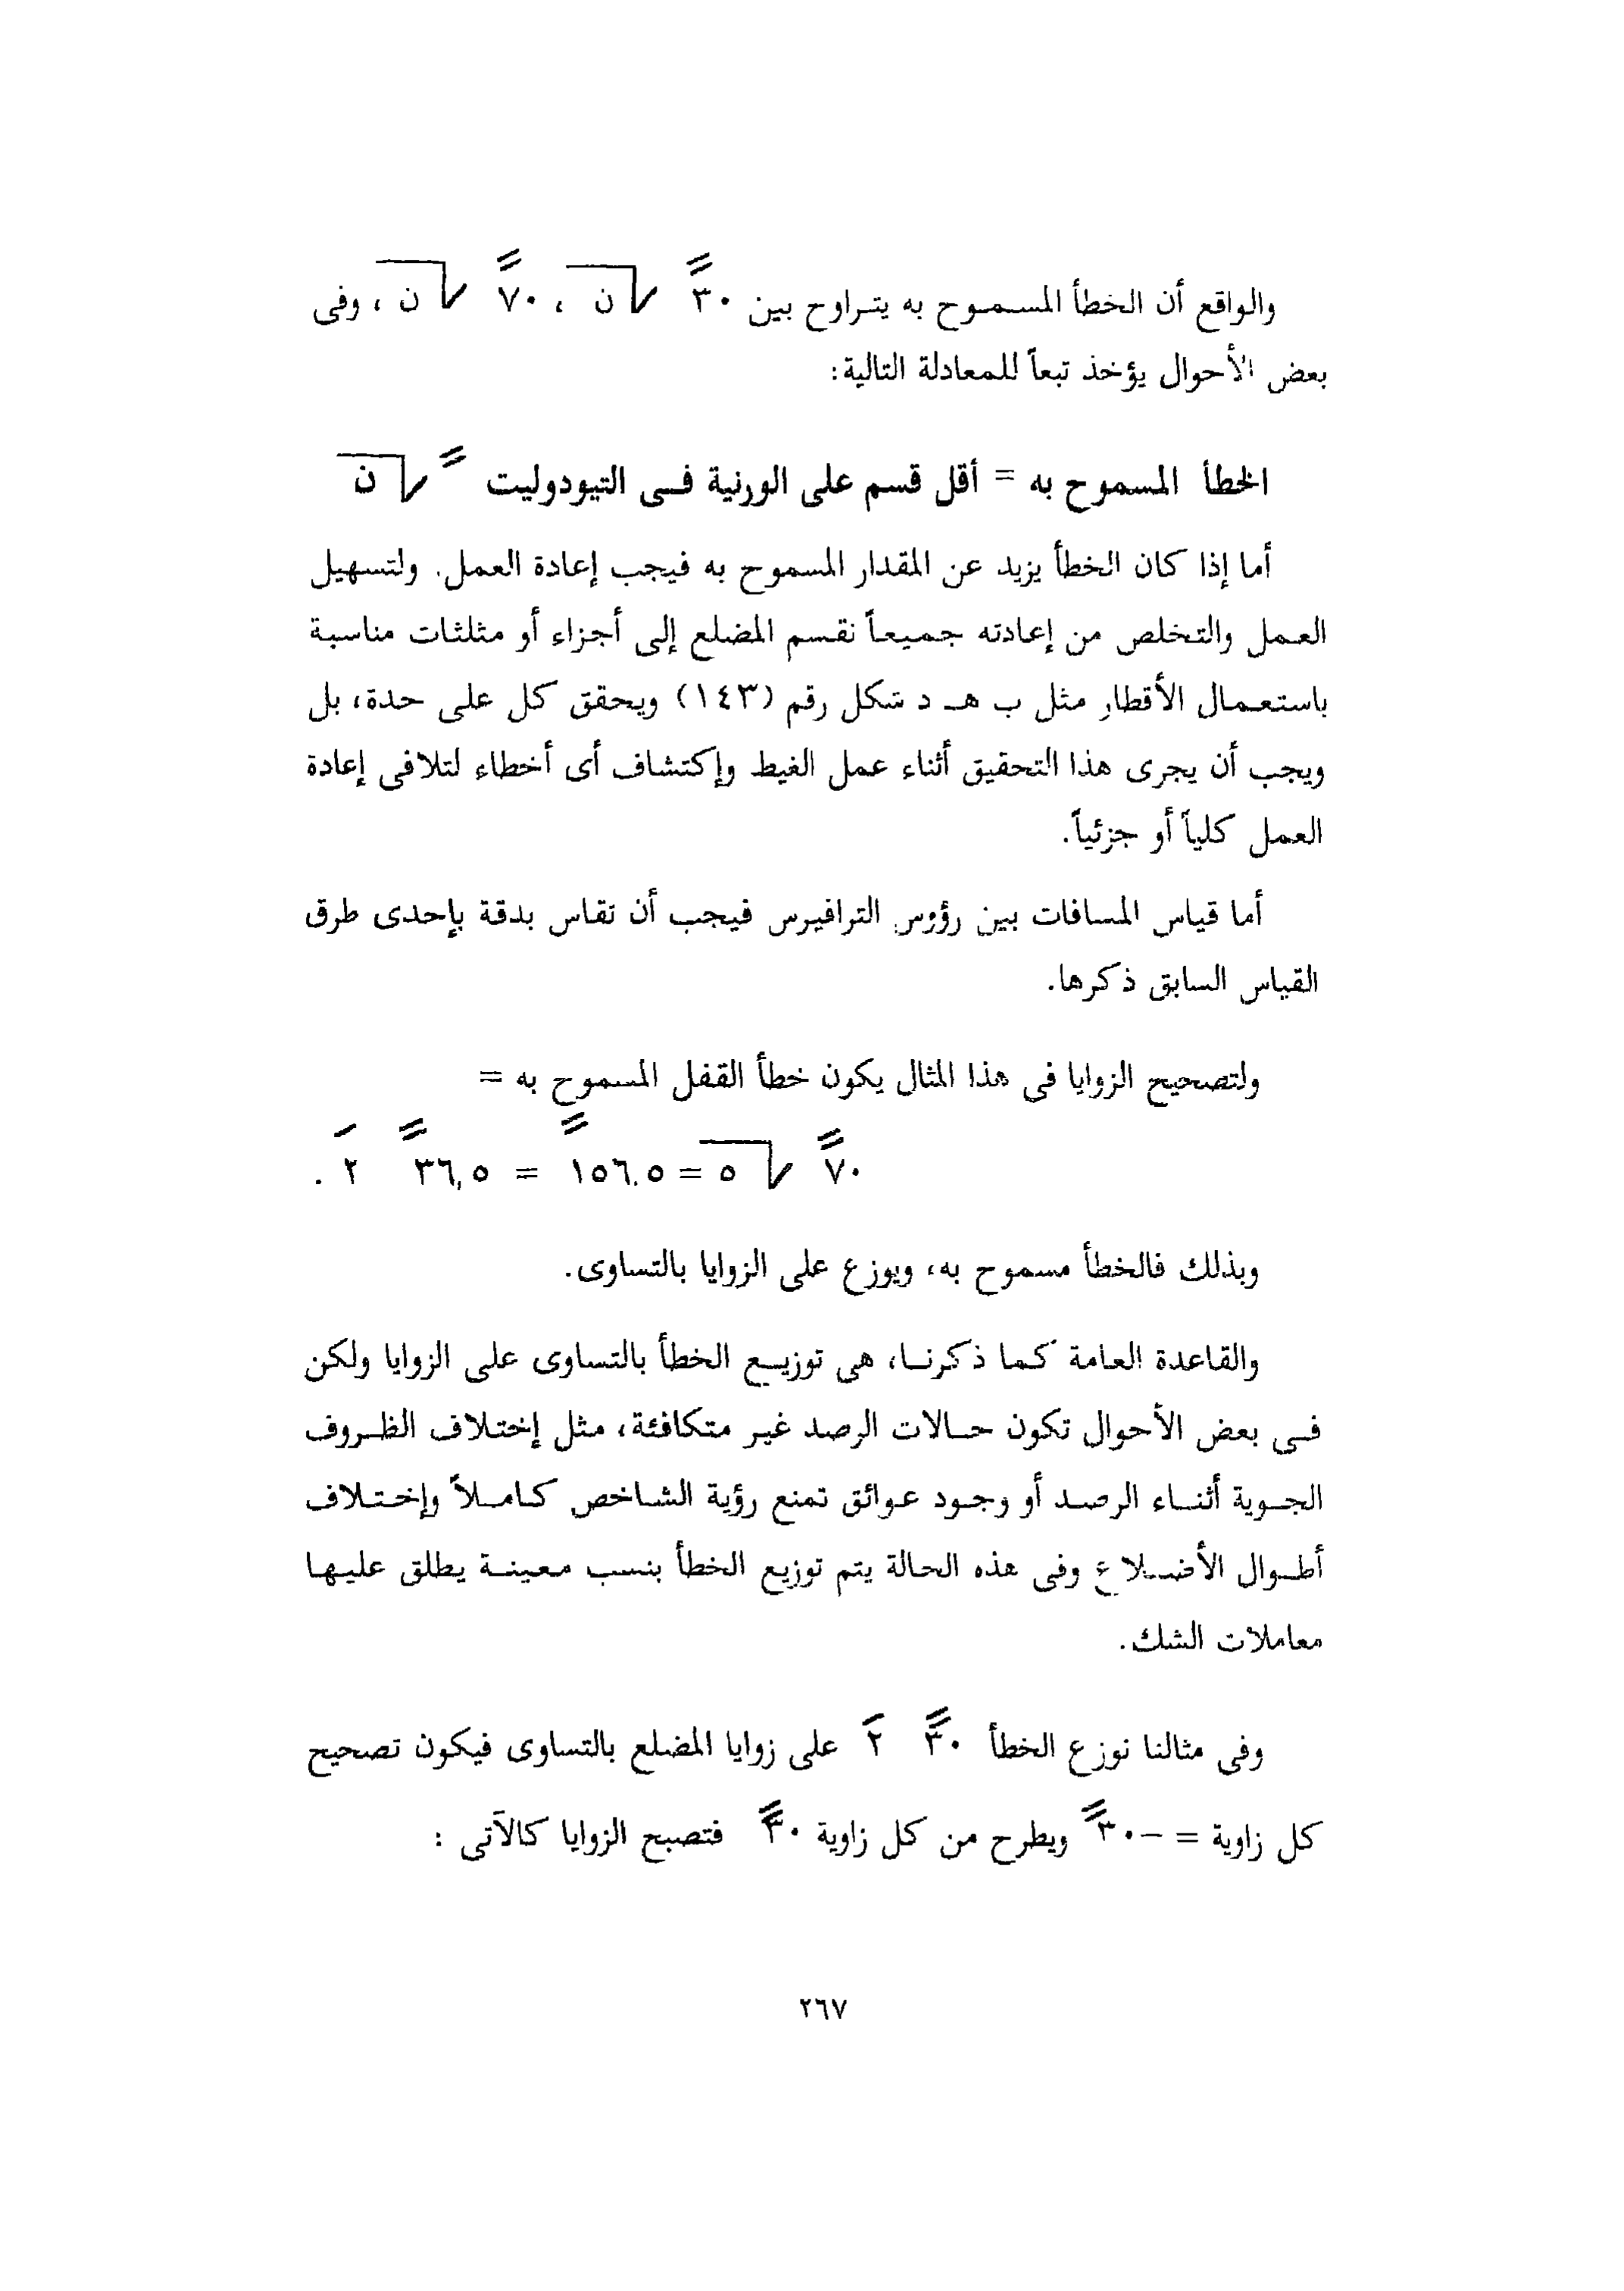 والواقع أن الخطأ المسموح به يتراوح بين ٣٠″ √ن ، ٧٠″ √ن ، وفى
بعض الأحوال يؤخذ تبعاً للمعادلة التالية:
الخطأ المسموح به = أقل قسم على الورنية فى التيودوليت ″ √ن
أما إذا كان الخطأ يزيد عن المقدار المسموح به فيجب إعادة العمل. ولتسهيل
العمل والتخلص من إعادته جميعاً نقسم المضلع إلى أجزاء أو مثلثات مناسبة
باستعمال الأقطار مثل ب هـ د شكل رقم (١٤٣) ويحقق كل على حدة، بل
ويجب أن يجرى هذا التحقيق أثناء عمل الغيط وإكتشاف أى أخطاء لتلافى إعادة
العمل كلياً أو جزئياً.
أما قياس المسافات بين رؤوس الترافيرس فيجب أن تقاس بدقة بإحدى طرق
القياس السابق ذكرها.
ولتصحيح الزوايا فى هذا المثال يكون خطأ القفل المسموح به =
٧٠″ √٥ = ١٥٦,٥″ = ٣٦,٥″ ٢′ .
وبذلك فالخطأ مسموح به، ويوزع على الزوايا بالتساوى.
والقاعدة العامة كما ذكرنا، هى توزيع الخطأ بالتساوى على الزوايا ولكن
فى بعض الأحوال تكون حالات الرصد غير متكافئة، مثل إختلاف الظروف
الجوية أثناء الرصد أو وجود عوائق تمنع رؤية الشاخص كاملاً وإختلاف
أطوال الأضلاع وفى هذه الحالة يتم توزيع الخطأ بنسب معينة يطلق عليها
معاملات الشك.
وفى مثالنا نوزع الخطأ ٣٠″ ٢′ على زوايا المضلع بالتساوى فيكون تصحيح
كل زاوية = –٣٠″ ويطرح من كل زاوية ٣٠″ فتصبح الزوايا كالآتى :
٢٦٧